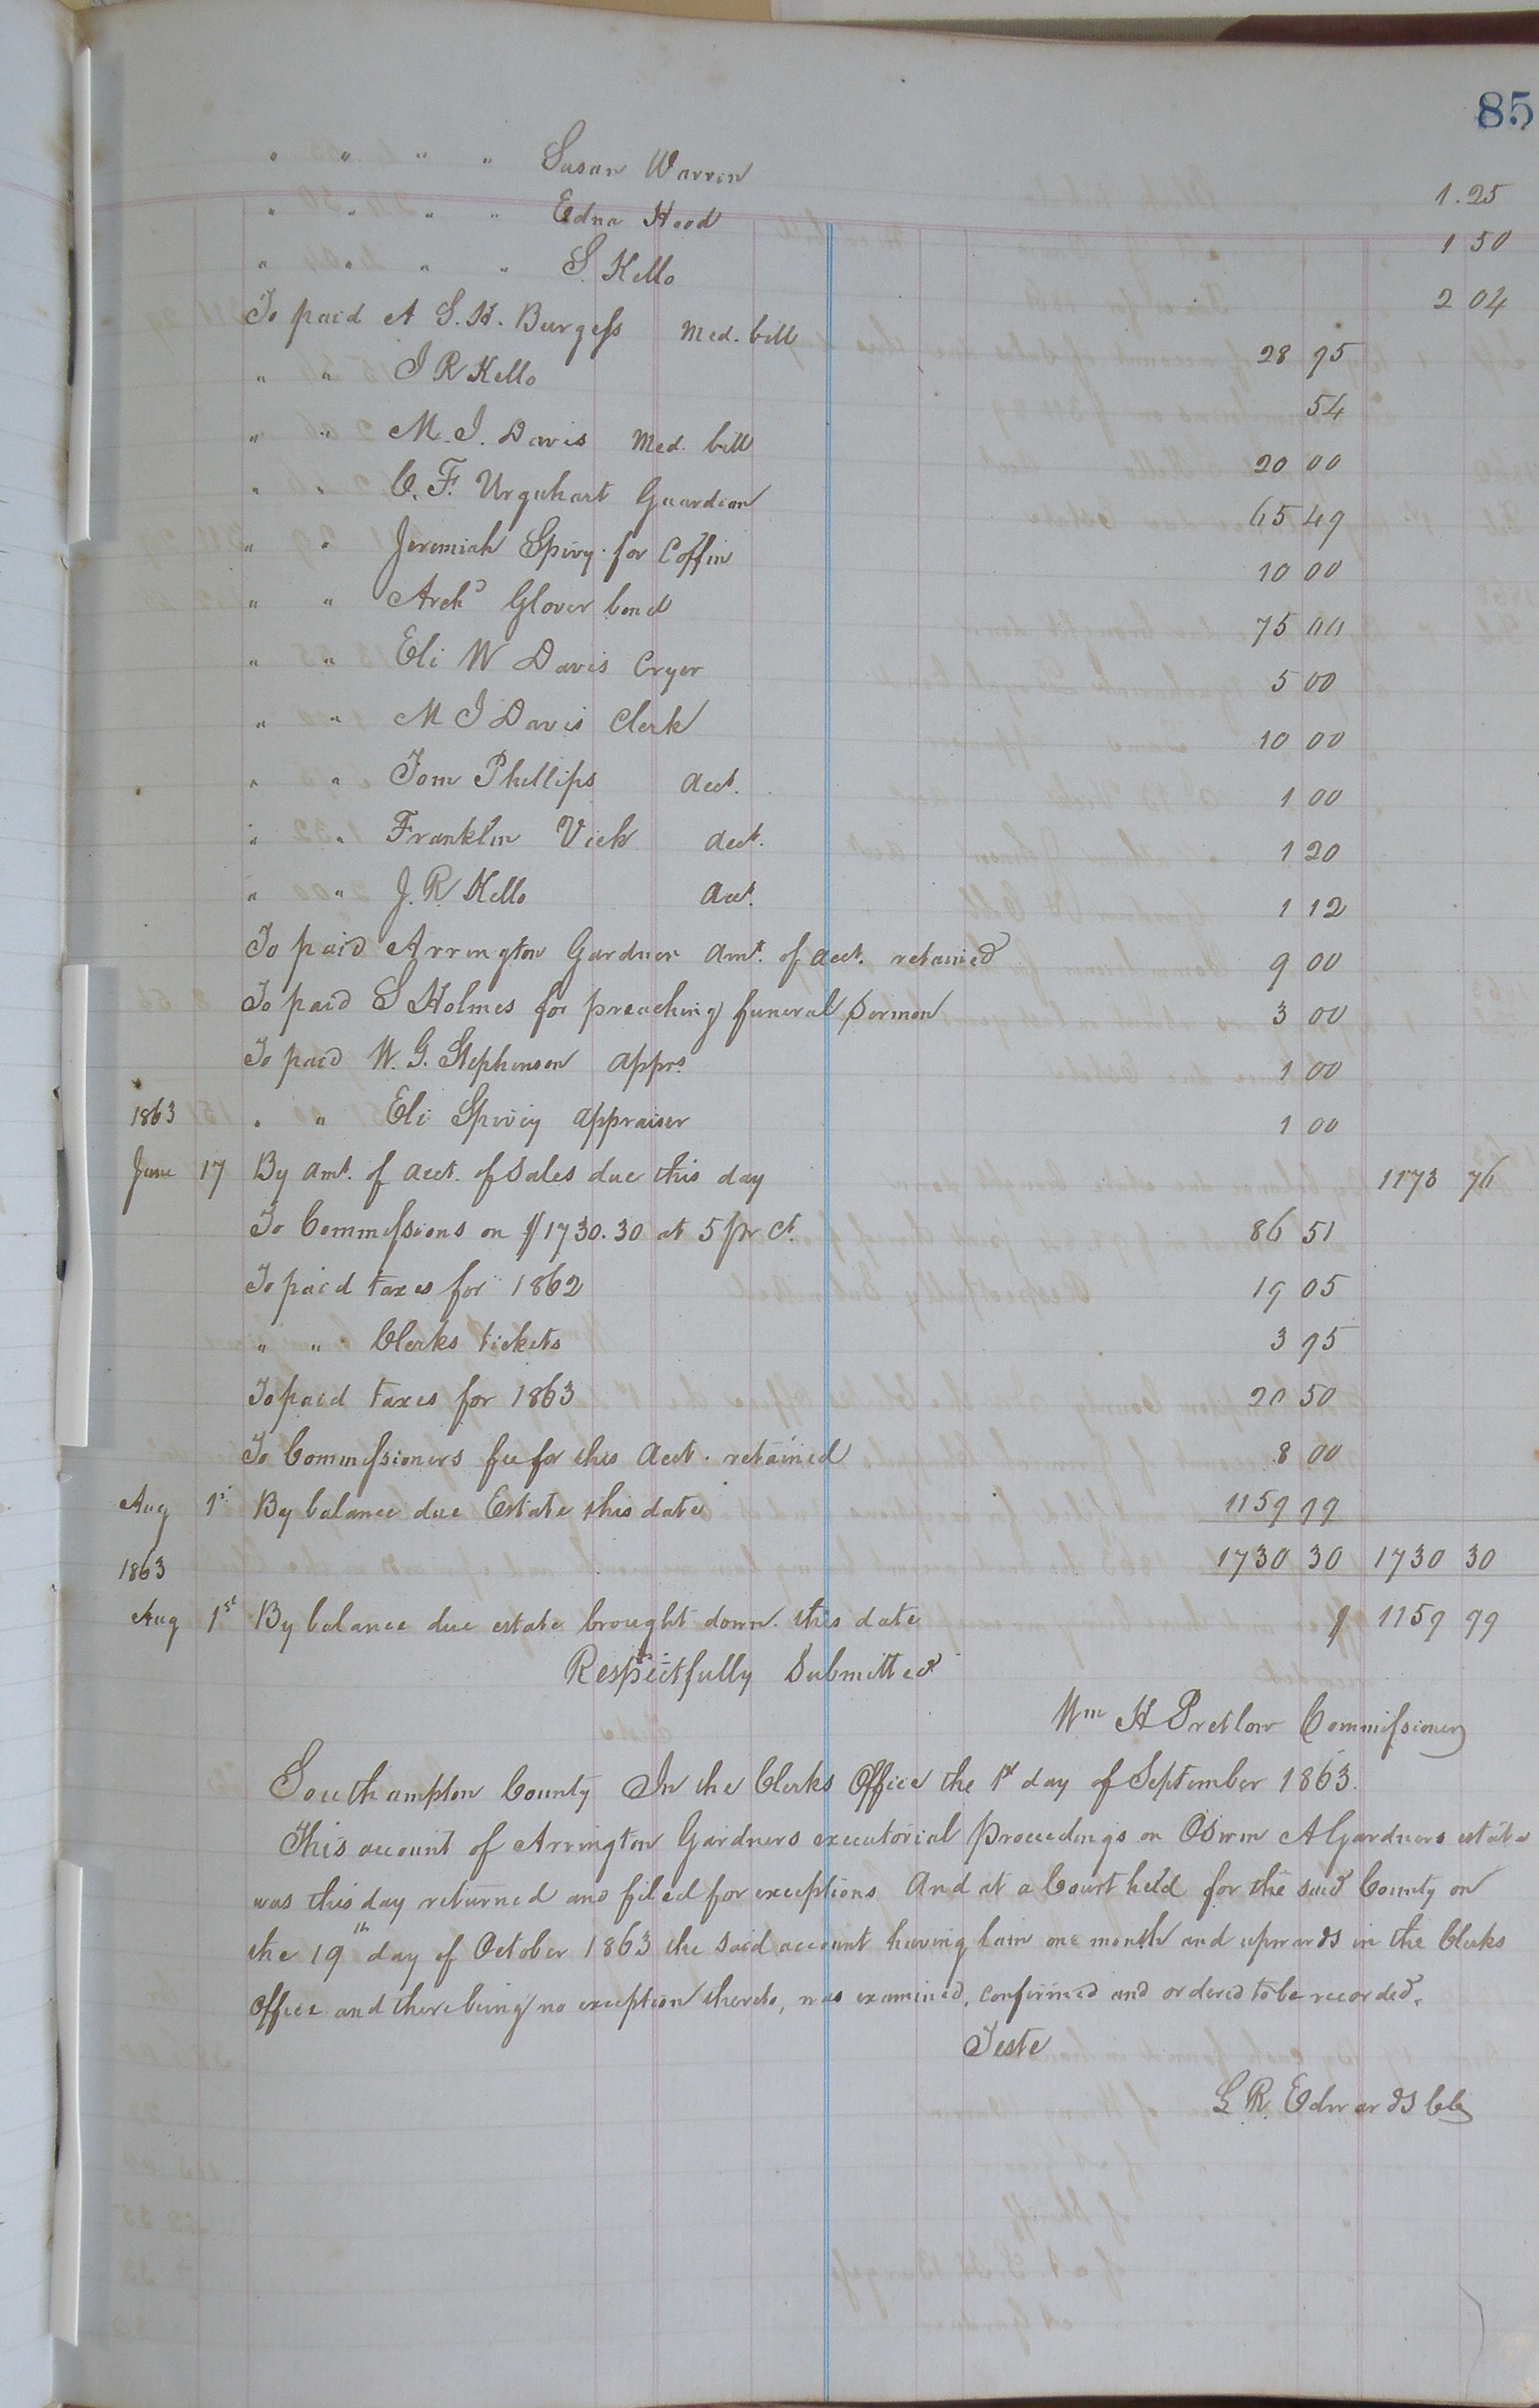 85
" " " " Susan Warren 1.25
" " " " Edna Hood 1 50
" " " " S. Kello 2 04
To paid A S. H. Burgess Med. bill 28 95
" " J R Kello 54
" " M. J. Davis Med. bill 20 00
" " C. F. Urquhart Guardian 65 49
" " Jeremiah Spivy for Coffin 10 00
" " Archd Glover bond 75 00
" " Eli W Davis Cryer 5 00
" " M J Davis Clerk 10 00
" " Tom Phillips acct. 1 00
" " Franklin Vick acct. 1 20
" " J. R. Kello acct. 1 12
To paid Arrington Gardner amt. of acct. retained 9 00
To paid S Holmes for preaching funeral Sermon 3 00
To paid W. G. Stephenson apprs 1 00
1863 " " Eli Spivey appraiser 1 00
June 17 By amt. of acct. of Sales due this day 1173 76
To Commissions on $1730.30 at 5 pr ct. 86 51
To paid taxes for 1862 19 05
" " Clerks tickets 3 95
To paid taxes for 1863 20 50
To Commissioners fee for this acct. retained 8 00
Aug 1st By balance due Estate this date 1159 99
1863 1730 30 1730 30
Aug 1st By balance due estate brought down this date $ 1159 99
Respectfully Submitted
Wm H Pretlow Commissioner
Southampton County In the Clerks Office the 1st day of September 1863.
This account of Arrington Gardners executorial proceedings on Oswin A Gardners estate
was this day returned and filed for exceptions And at a Court held for the said County on
the 19th day of October 1863 the said account having lain one month and upwards in the Clerks
Office and there being no exception thereto, was examined, confirmed and ordered to be recorded.
Teste
L R. Edwards Clk